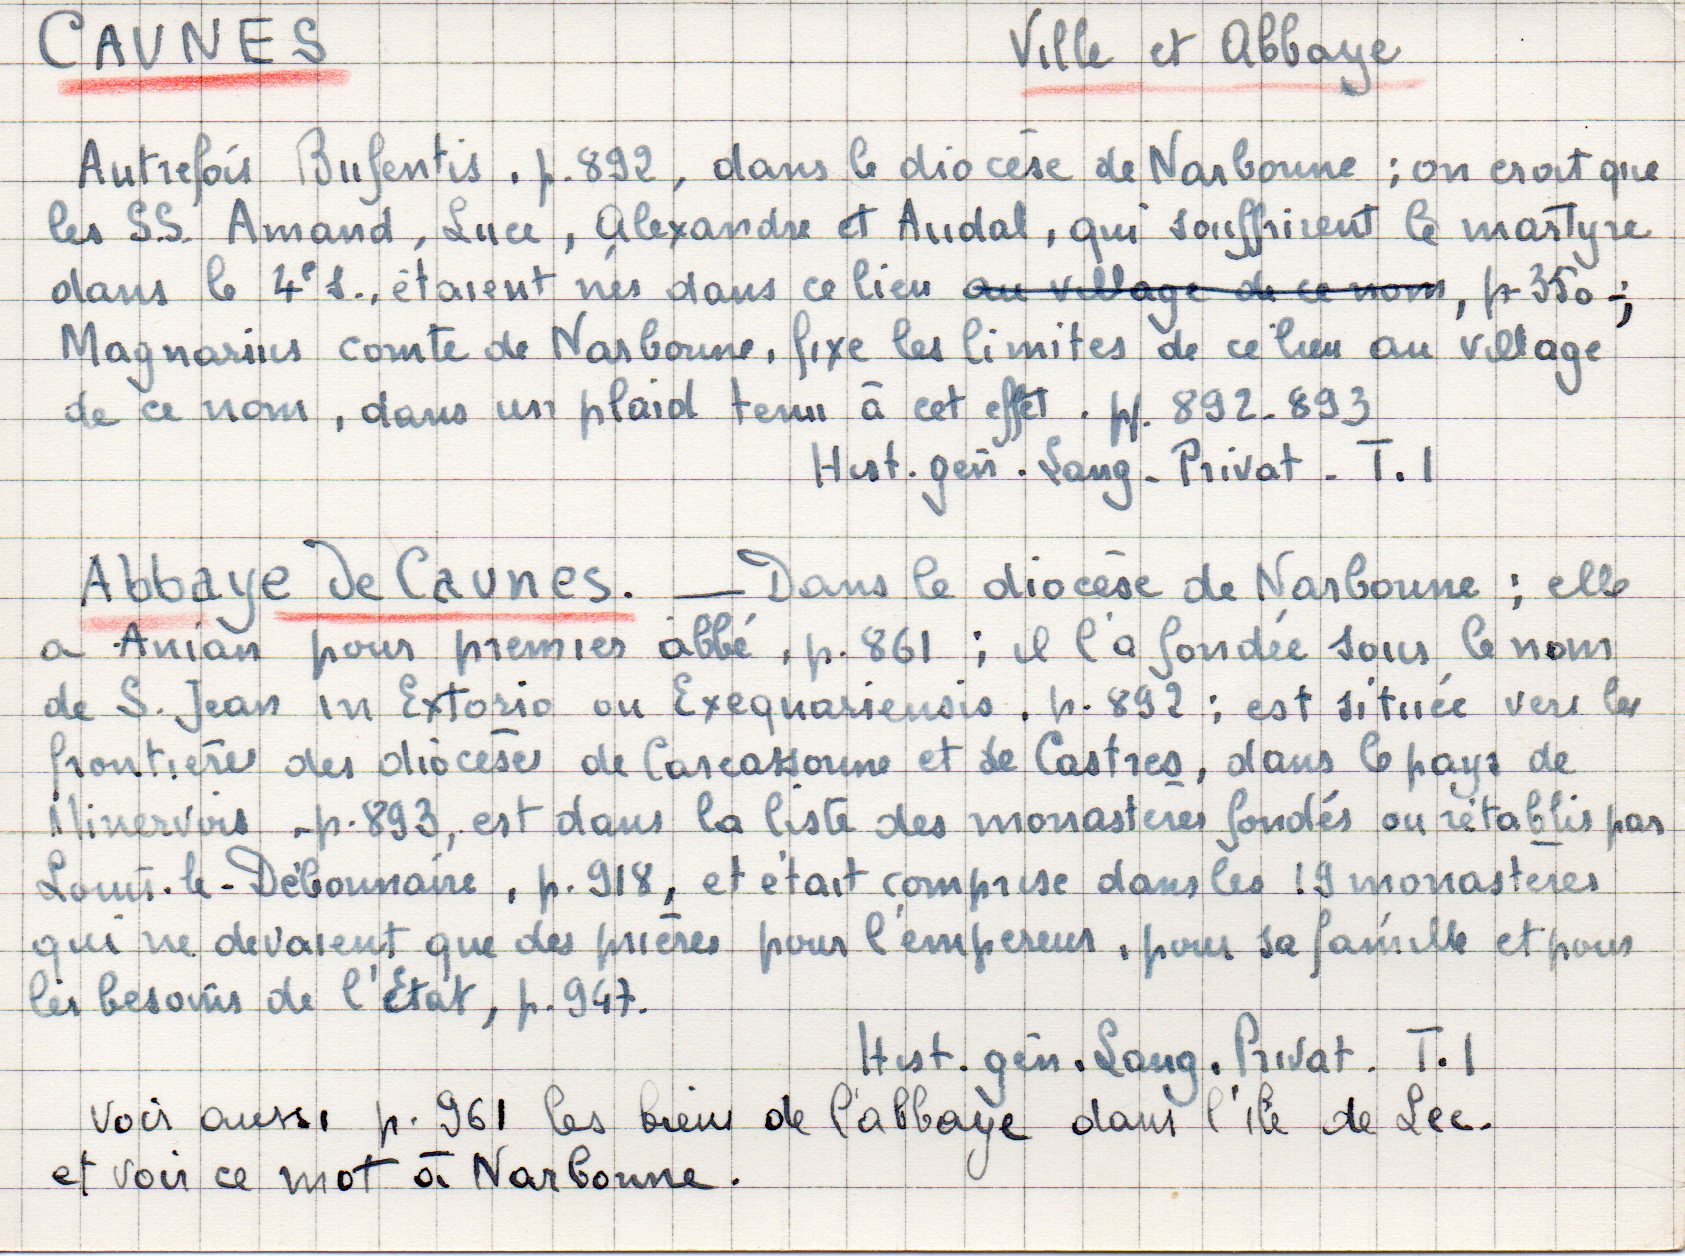 CAUNES Ville et Abbaye
Autrefois Bufentis, p. 892, dans le diocèse de Narbonne ; on croit que
les S.S. Amand, Luce, Alexandre et Audal, qui souffrirent le martyre
dans le 4e s., étaient nés dans ce lieu au village de ce nom, p 350 - ;
Magnarius comte de Narbonne, fixe les limites de ce lieu au village
de ce nom, dans un plaid tenu à cet effet. pp. 892-893
Hist. gén. Lang - Privat - T. I
Abbaye De Caunes. — Dans le diocèse de Narbonne ; elle
a Anian pour premier abbé, p. 861 ; il l'a fondée sous le nom
de S. Jean in Extorio ou Exequariensis, p. 892 ; est située vers les
frontières des diocèses de Carcassonne et de Castres, dans le pays de
Minervois, p. 893, est dans la liste des monastères fondés ou rétablis par
Louis-le-Débonnaire, p. 918, et était comprise dans les 19 monastères
qui ne devaient que des prières pour l'empereur, pour sa famille et pour
les besoins de l'État, p. 947.
Hist. gén. Lang. Privat. T. I
Voir aussi p. 961 les biens de l'abbaye dans l'île de Lec.
et voir ce mot à Narbonne.